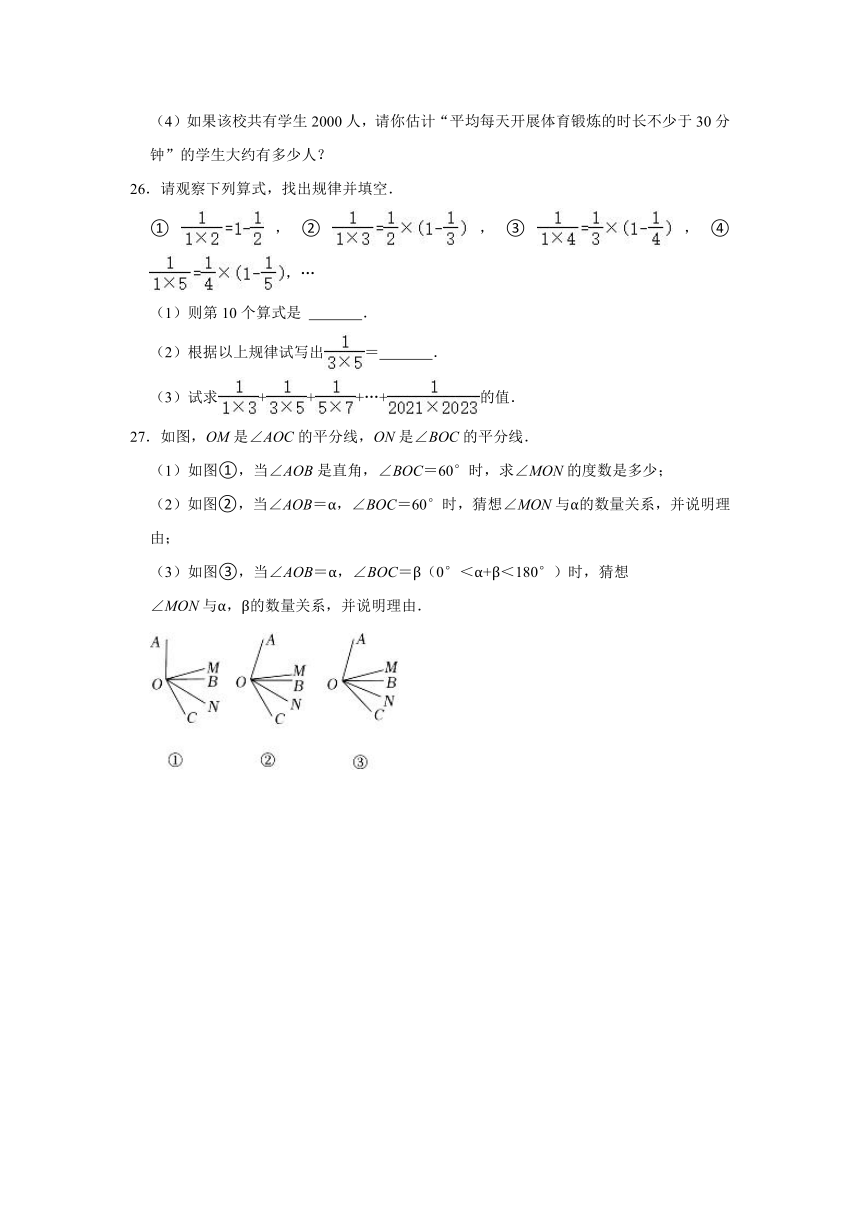 （4）如果该校共有学生 2000 人，请你估计“平均每天开展体育锻炼的时长不少于 30 分
钟”的学生大约有多少人？
26．请观察下列算式，找出规律并填空．
① 1/(1×2)=1-1/2 ， ② 1/(1×3)=1/2×(1-1/3) ， ③ 1/(1×4)=1/3×(1-1/4) ， ④
1/(1×5)=1/4×(1-1/5)，…
（1）则第 10 个算式是 ______．
（2）根据以上规律试写出1/(3×5)=______．
（3）试求1/(1×3)+1/(3×5)+1/(5×7)+…+1/(2021×2023)的值．
27．如图，OM 是∠AOC 的平分线，ON 是∠BOC 的平分线．
（1）如图①，当∠AOB 是直角，∠BOC＝60°时，求∠MON 的度数是多少；
（2）如图②，当∠AOB＝α，∠BOC＝60°时，猜想∠MON 与α的数量关系，并说明理
由；
（3）如图③，当∠AOB＝α，∠BOC＝β（0°＜α+β＜180°）时，猜想
∠MON 与α，β的数量关系，并说明理由．
A
M
O
B
N
C
①
A
M
O
B
N
C
②
A
M
O
B
N
C
③